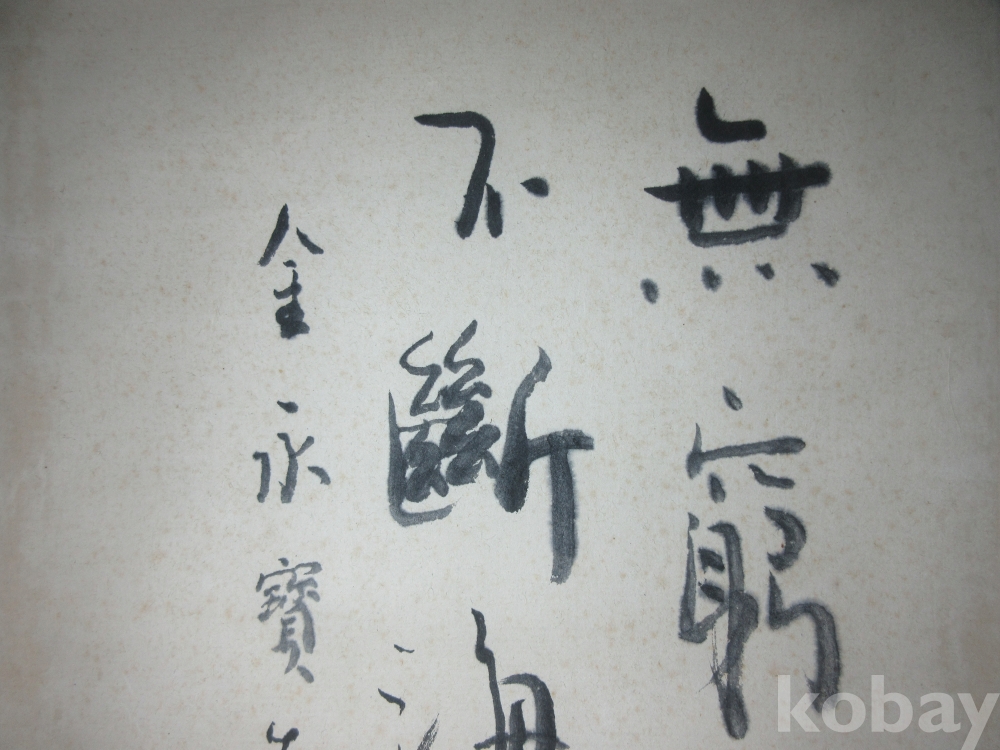 無窮
不斷海
金永寶
kobay